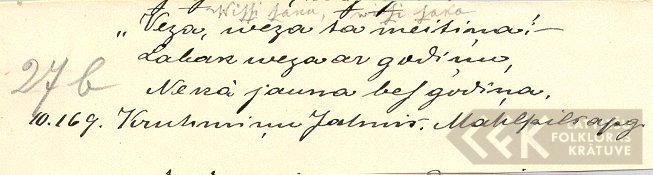 Wissi saka, wissi saka
„Veza, weza ta meitina!—
Labak weza ar godinu,
Nekà jauna bes godina.
27b
10.169. Kruhmiņu Jahnis. Mahlpils apg.
LATVIEŠU
FOLKLORAS
KRĀTUVE
LFK